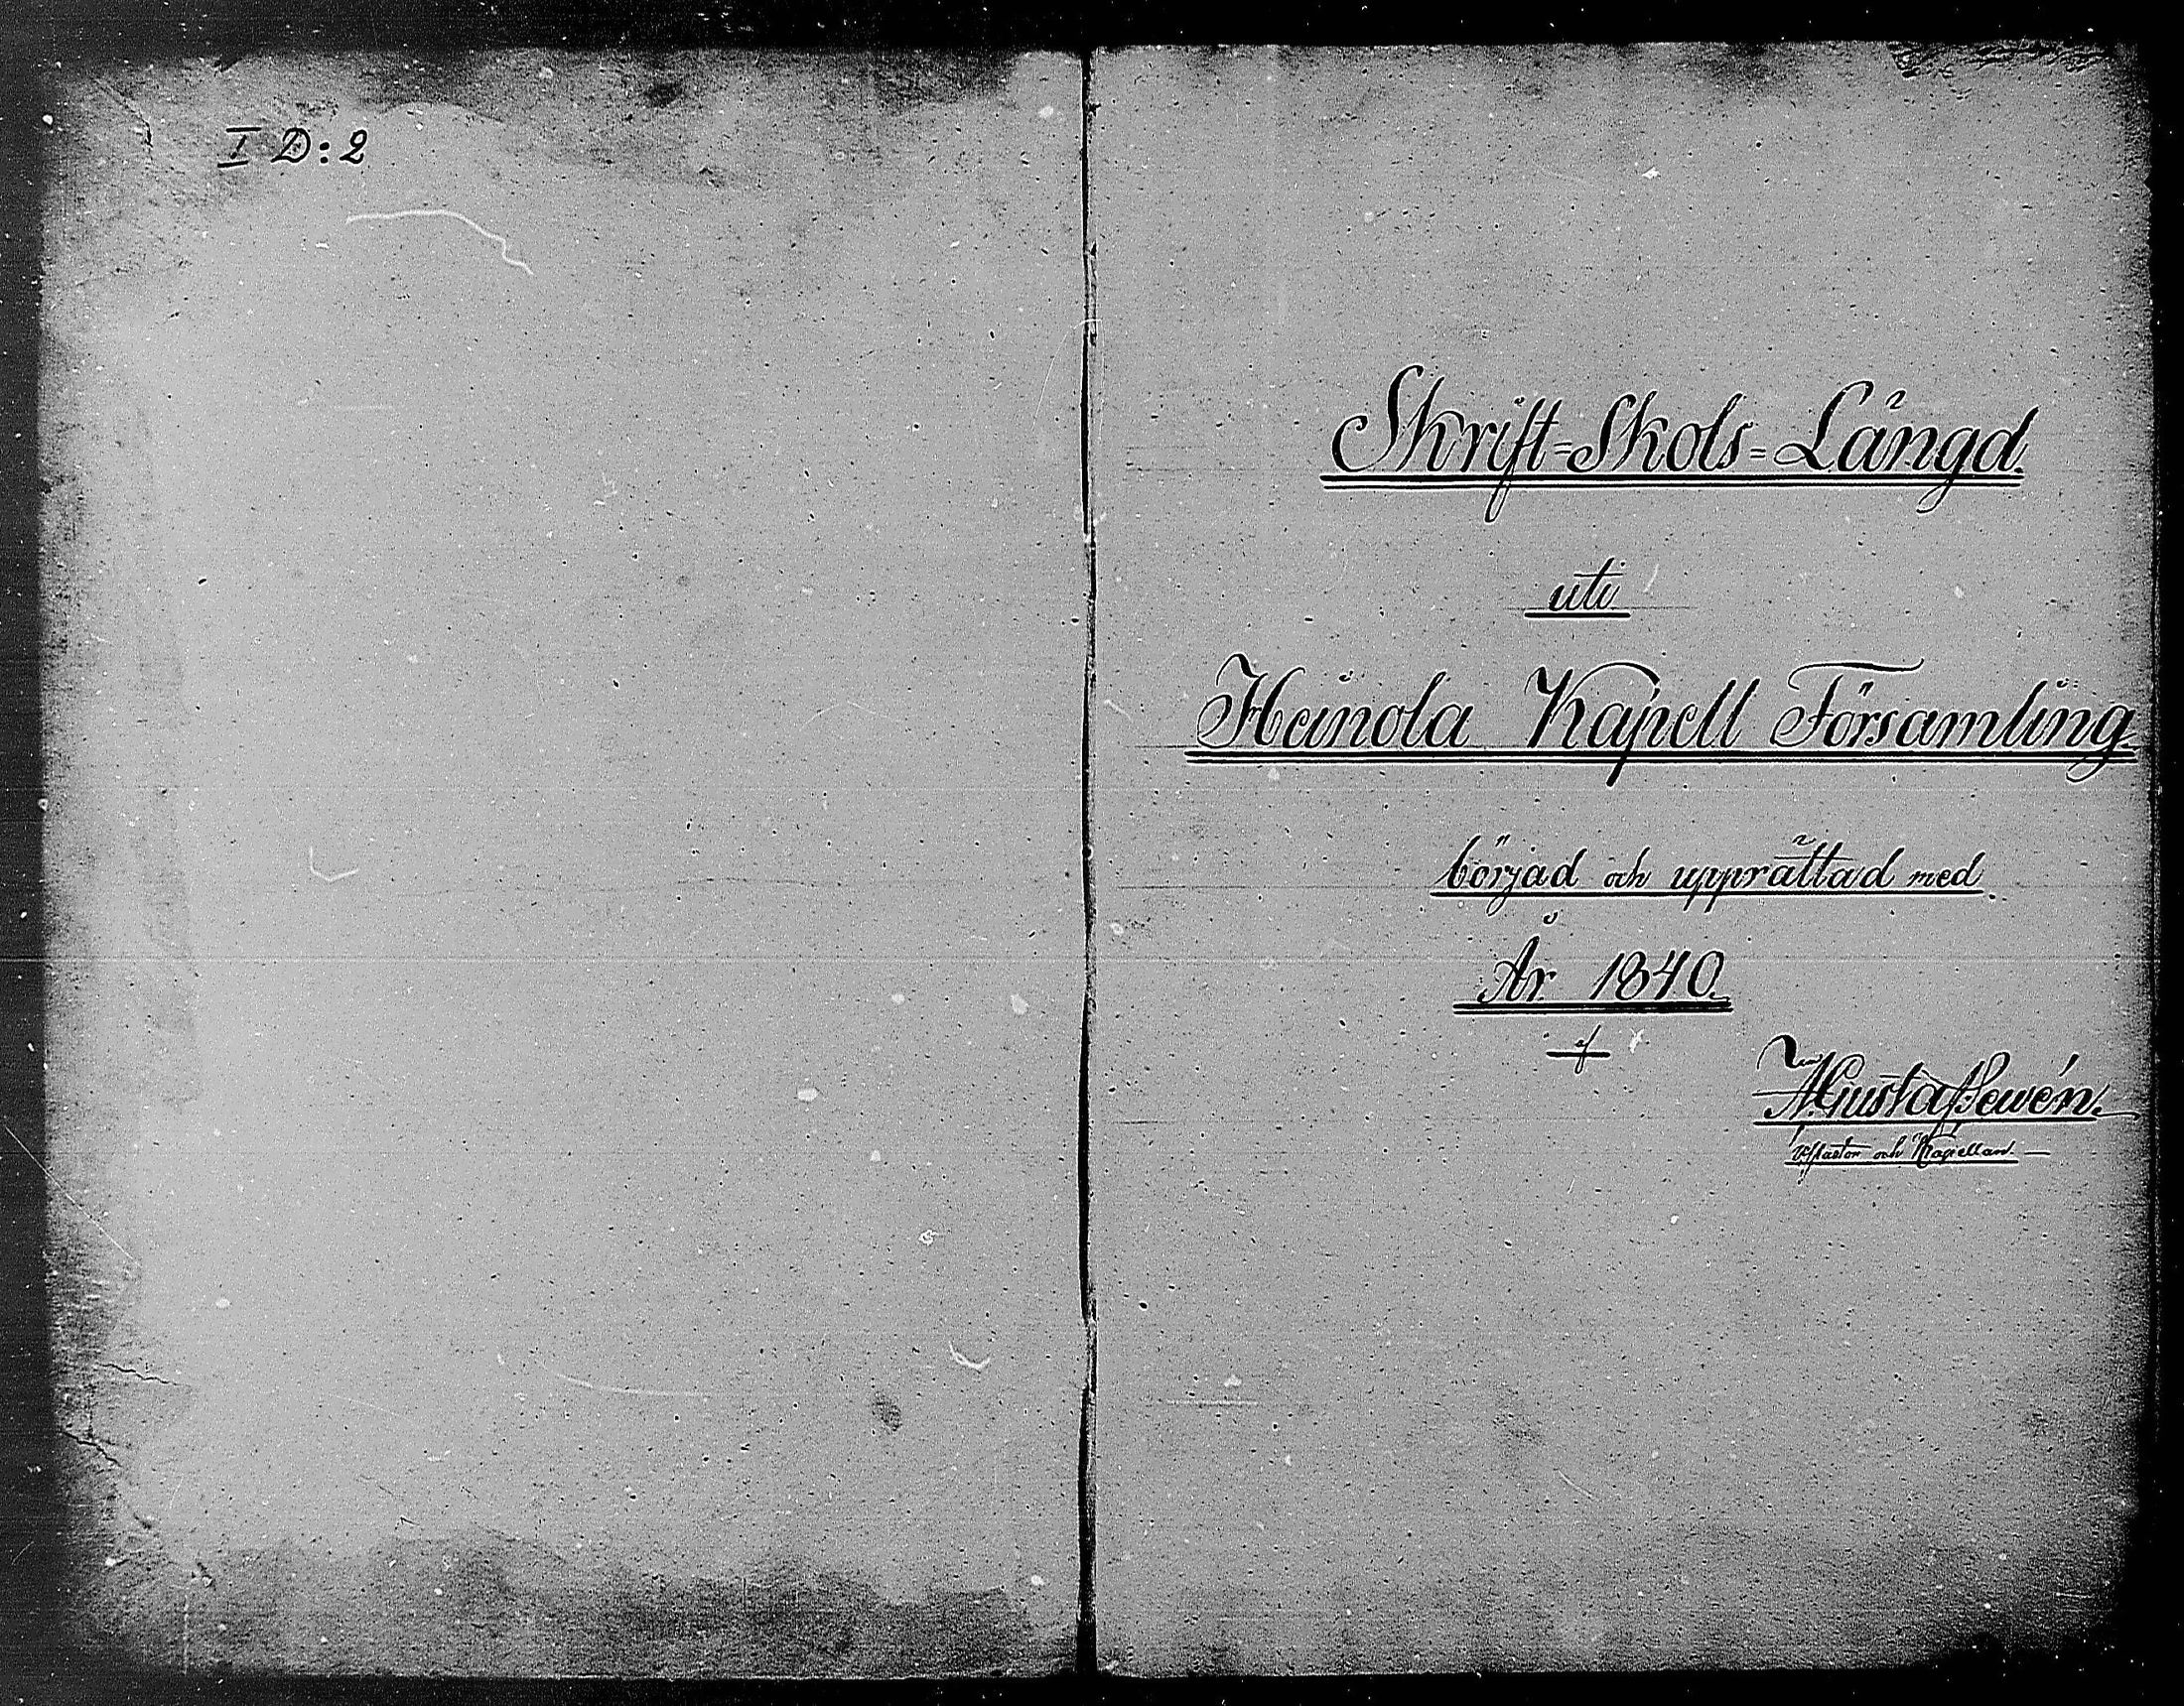 I D:2
Skrift=Skols=Längd.
uti
Heinola Kapell Församling.
börjad och upprättad med
År 1840.
af
Pastor och Kapellan.